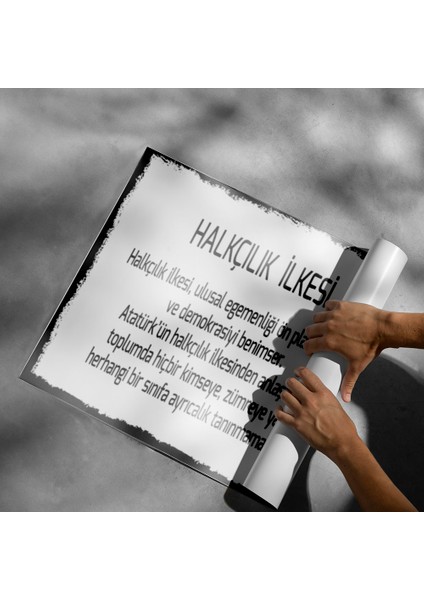 HALKÇILIK İLKESİ
Halkçılık ilkesi, ulusal egemenliği ön pla
ve demokrasiyi benimser.
Atatürk'ün halkçılık ilkesinden anlaş
toplumda hiçbir kimseye, zümreye ve
herhangi bir sınıfa ayrıcalık tanınmama